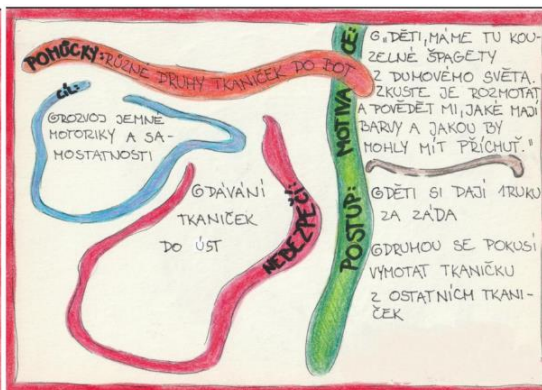 POMŮCKY: RŮZNÉ DRUHY TKANIČEK DO BOT
CÍL:
ROZVOJ JEMNE
MOTORIKY A SA-
MOSTATNOSTI
NEBEZPEČÍ:
DÁVÁNÍ
TKANIČEK
DO ÚST
MOTIVACE:
„DĚTI, MÁME TU KOU-
ZELNÉ ŠPAGETY
Z DUHOVÉHO SVĚTA.
ZKUSTE JE ROZMOTAT
A POVĚDĚT MI, JAKÉ MAJÍ
BARVY A JAKOU BY
MOHLY MÍT PŘÍCHUŤ."
POSTUP:
DĚTI SI DAJÍ 1RUKU
ZA ZÁDA
DRUHOU SE POKUSÍ
VYMOTAT TKANIČKU
Z OSTATNÍCH TKANI-
ČEK